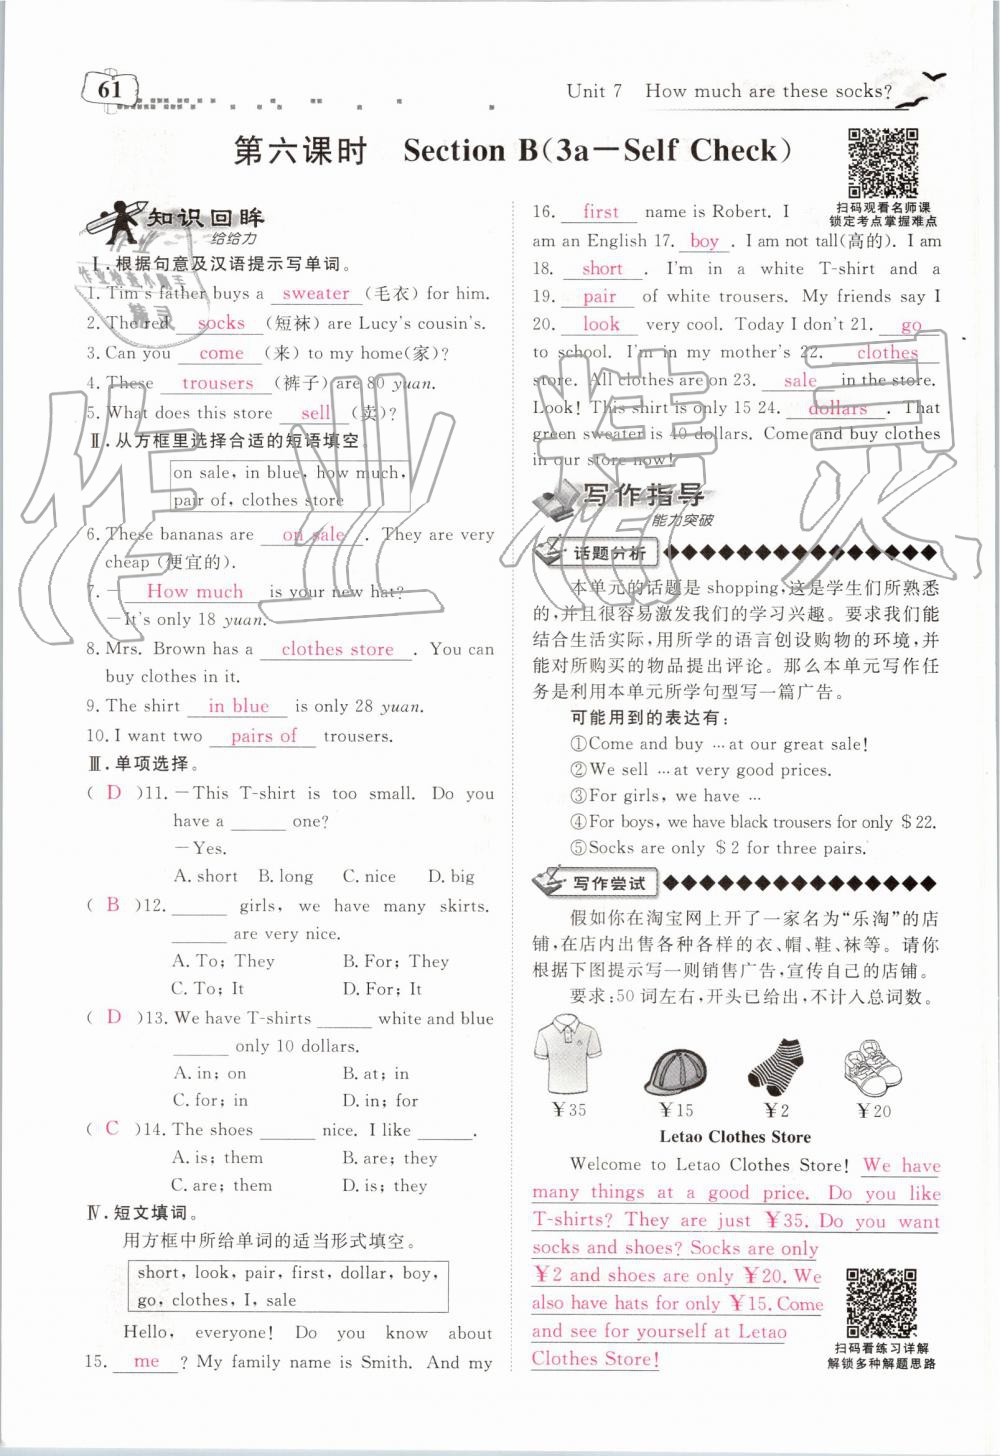 61
Unit 7 How much are these socks?
第六课时 Section B(3a－Self Check)
知识回眸
给给力
Ⅰ.根据句意及汉语提示写单词。
1. Tim's father buys a sweater (毛衣) for him.
2. The red socks (短袜) are Lucy's cousin's.
3. Can you come (来) to my home(家)?
4. These trousers (裤子) are 80 yuan.
5. What does this store sell (卖)?
Ⅱ.从方框里选择合适的短语填空。
on sale, in blue, how much,
pair of, clothes store
6. These bananas are on sale . They are very
cheap (便宜的).
7. — How much is your new hat?
—It's only 18 yuan.
8. Mrs. Brown has a clothes store . You can
buy clothes in it.
9. The shirt in blue is only 28 yuan.
10. I want two pairs of trousers.
Ⅲ.单项选择。
( D )11. －This T-shirt is too small. Do you
have a ______ one?
－Yes.
A. short B. long C. nice D. big
( B )12. ______ girls, we have many skirts.
______ are very nice.
A. To; They B. For; They
C. To; It D. For; It
( D )13. We have T-shirts ______ white and blue
______ only 10 dollars.
A. in; on B. at; in
C. for; in D. in; for
( C )14. The shoes ______ nice. I like ______.
A. is; them B. are; they
C. are; them D. is; they
Ⅳ.短文填词。
用方框中所给单词的适当形式填空。
short, look, pair, first, dollar, boy,
go, clothes, I, sale
Hello, everyone! Do you know about
15. me ? My family name is Smith. And my
16. first name is Robert. I
am an English 17. boy . I am not tall(高的). I am
18. short . I'm in a white T-shirt and a
19. pair of white trousers. My friends say I
20. look very cool. Today I don't 21. go
to school. I'm in my mother's 22. clothes
store. All clothes are on 23. sale in the store.
Look! This shirt is only 15 24. dollars . That
green sweater is 40 dollars. Come and buy clothes
in our store now!
扫码观看名师课
锁定考点掌握难点
写作指导
能力突破
话题分析
本单元的话题是 shopping,这是学生们所熟悉
的,并且很容易激发我们的学习兴趣。要求我们能
结合生活实际,用所学的语言创设购物的环境,并
能对所购买的物品提出评论。那么本单元写作任
务是利用本单元所学句型写一篇广告。
可能用到的表达有:
①Come and buy …at our great sale!
②We sell …at very good prices.
③For girls, we have …
④For boys, we have black trousers for only ＄22.
⑤Socks are only ＄2 for three pairs.
写作尝试
假如你在淘宝网上开了一家名为“乐淘”的店
铺,在店内出售各种各样的衣、帽、鞋、袜等。请你
根据下图提示写一则销售广告,宣传自己的店铺。
要求:50 词左右,开头已给出,不计入总词数。
￥35 ￥15 ￥2 ￥20
Letao Clothes Store
Welcome to Letao Clothes Store! We have
many things at a good price. Do you like
T-shirts? They are just ￥35. Do you want
socks and shoes? Socks are only
￥2 and shoes are only ￥20. We
also have hats for only ￥15. Come
and see for yourself at Letao
Clothes Store!
扫码看练习详解
解锁多种解题思路
作业精灵